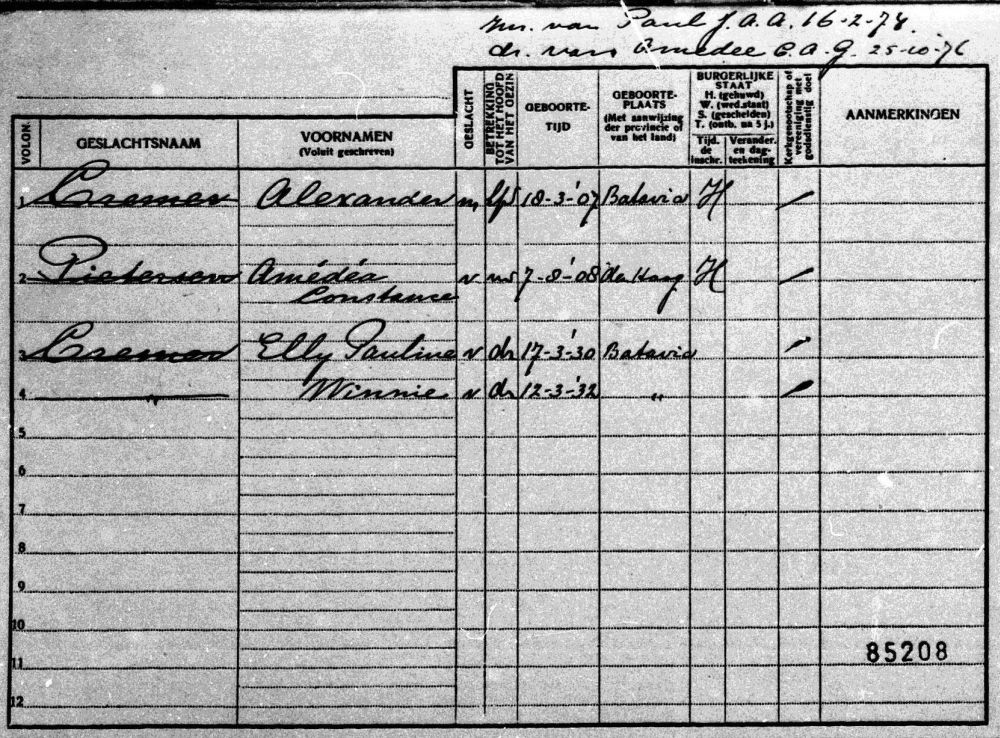 van Paul J.A.A. 16-2-74.
dr. van Amedee C.A.G. 25-10-76
VOLGN.
GESLACHTSNAAM
VOORNAMEN
(Voluit geschreven)
GESLACHT
BETREKKING TOT HET HOOFD VAN HET GEZIN
GEBOORTE-
TIJD
GEBOORTE-
PLAATS
(Met aanwijzing
der provincie of
van het land)
BURGERLIJKE
STAAT
H. (gehuwd)
W. (wed.staat)
S. (gescheiden)
T. (ontb. na 5 j.)
Tijd.
de
inschr.
Verander.
en dag-
teekening
Kerkgenootschap of vereeniging met godsdienstig doel
AANMERKINGEN
1 Cremer Alexander m 18-3-'07 Batavia H /
2 Pietersen Amédéa v 7-8-'08 den Haag H /
Constance
3 Cremer Elly Pauline v dr 17-3-'30 Batavia /
4 — Winnie v dr 12-3-'32 „ /
5
6
7
8
9
10
11
12
85208